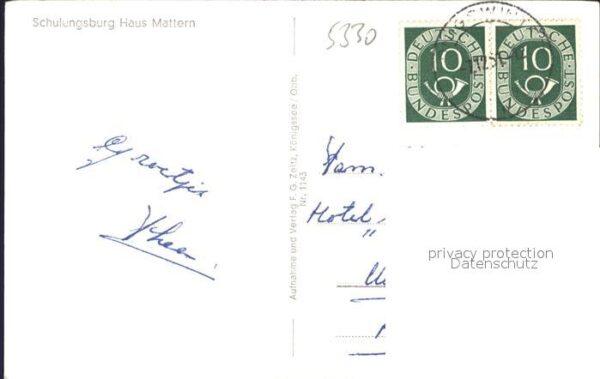 Schulungsburg Haus Mattern
5330
DEUTSCHE BUNDESPOST
10
DEUTSCHE BUNDESPOST
10
Groetjes
Fam.
Hotel
"
Aufnahme und Verlag F. G. Zeitz, Königssee / Obb.
Nr. 1143
privacy protection
Datenschutz